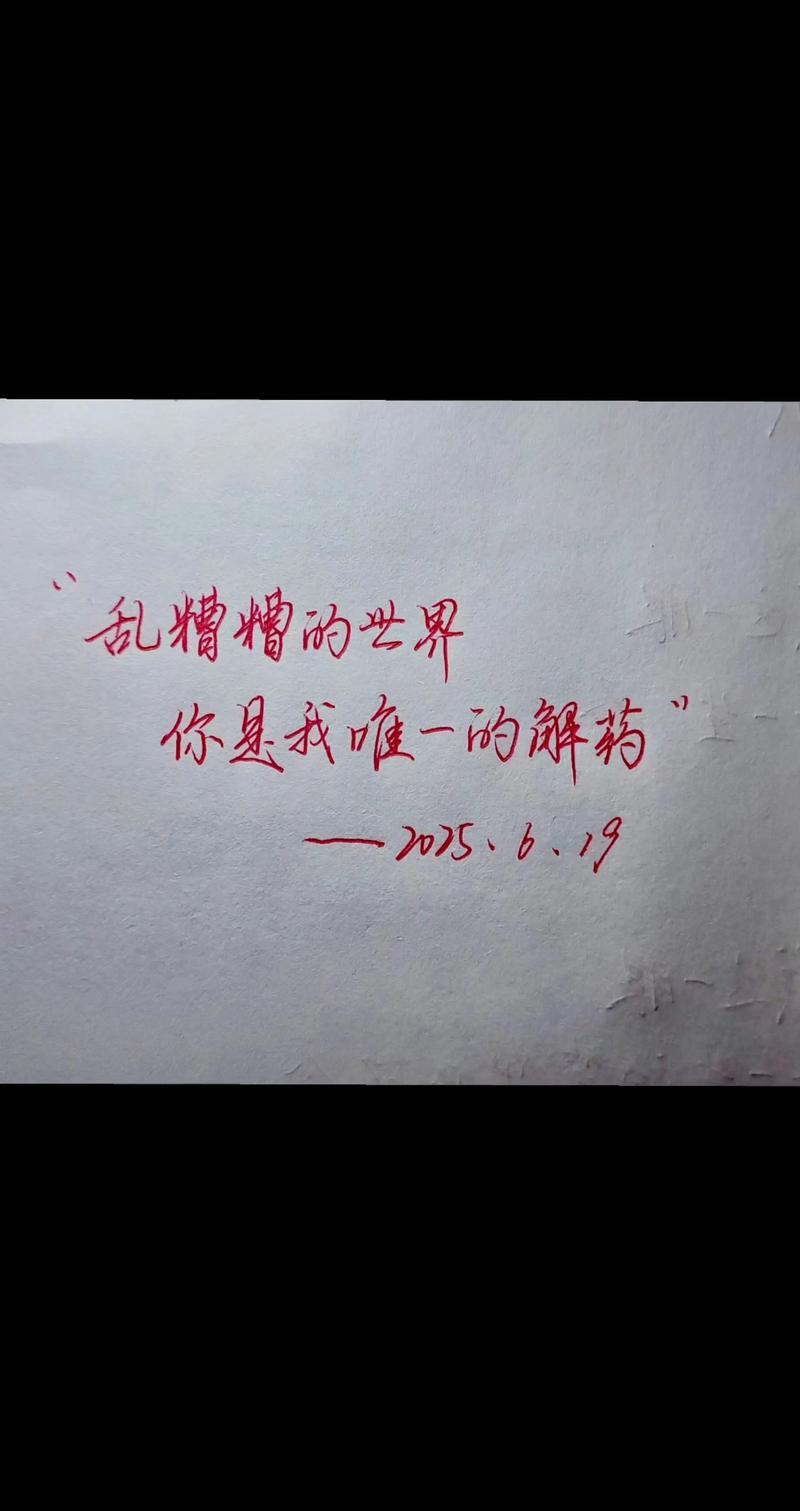 “乱糟糟的世界
你是我唯一的解药”
——2025、6、19